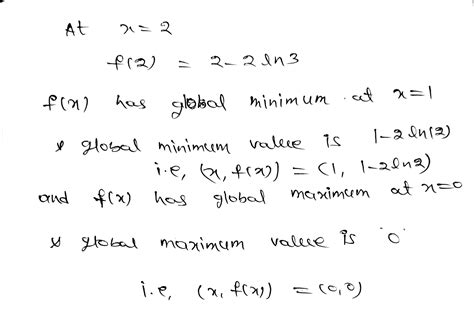 At x = 2
f(2) = 2 - 2 ln 3
f(x) has global minimum at x = 1
& global minimum value is 1 - 2 ln(2)
i.e, (x, f(x)) = (1, 1 - 2 ln 2)
and f(x) has global maximum at x = 0
& global maximum value is '0'
i.e, (x, f(x)) = (0, 0)